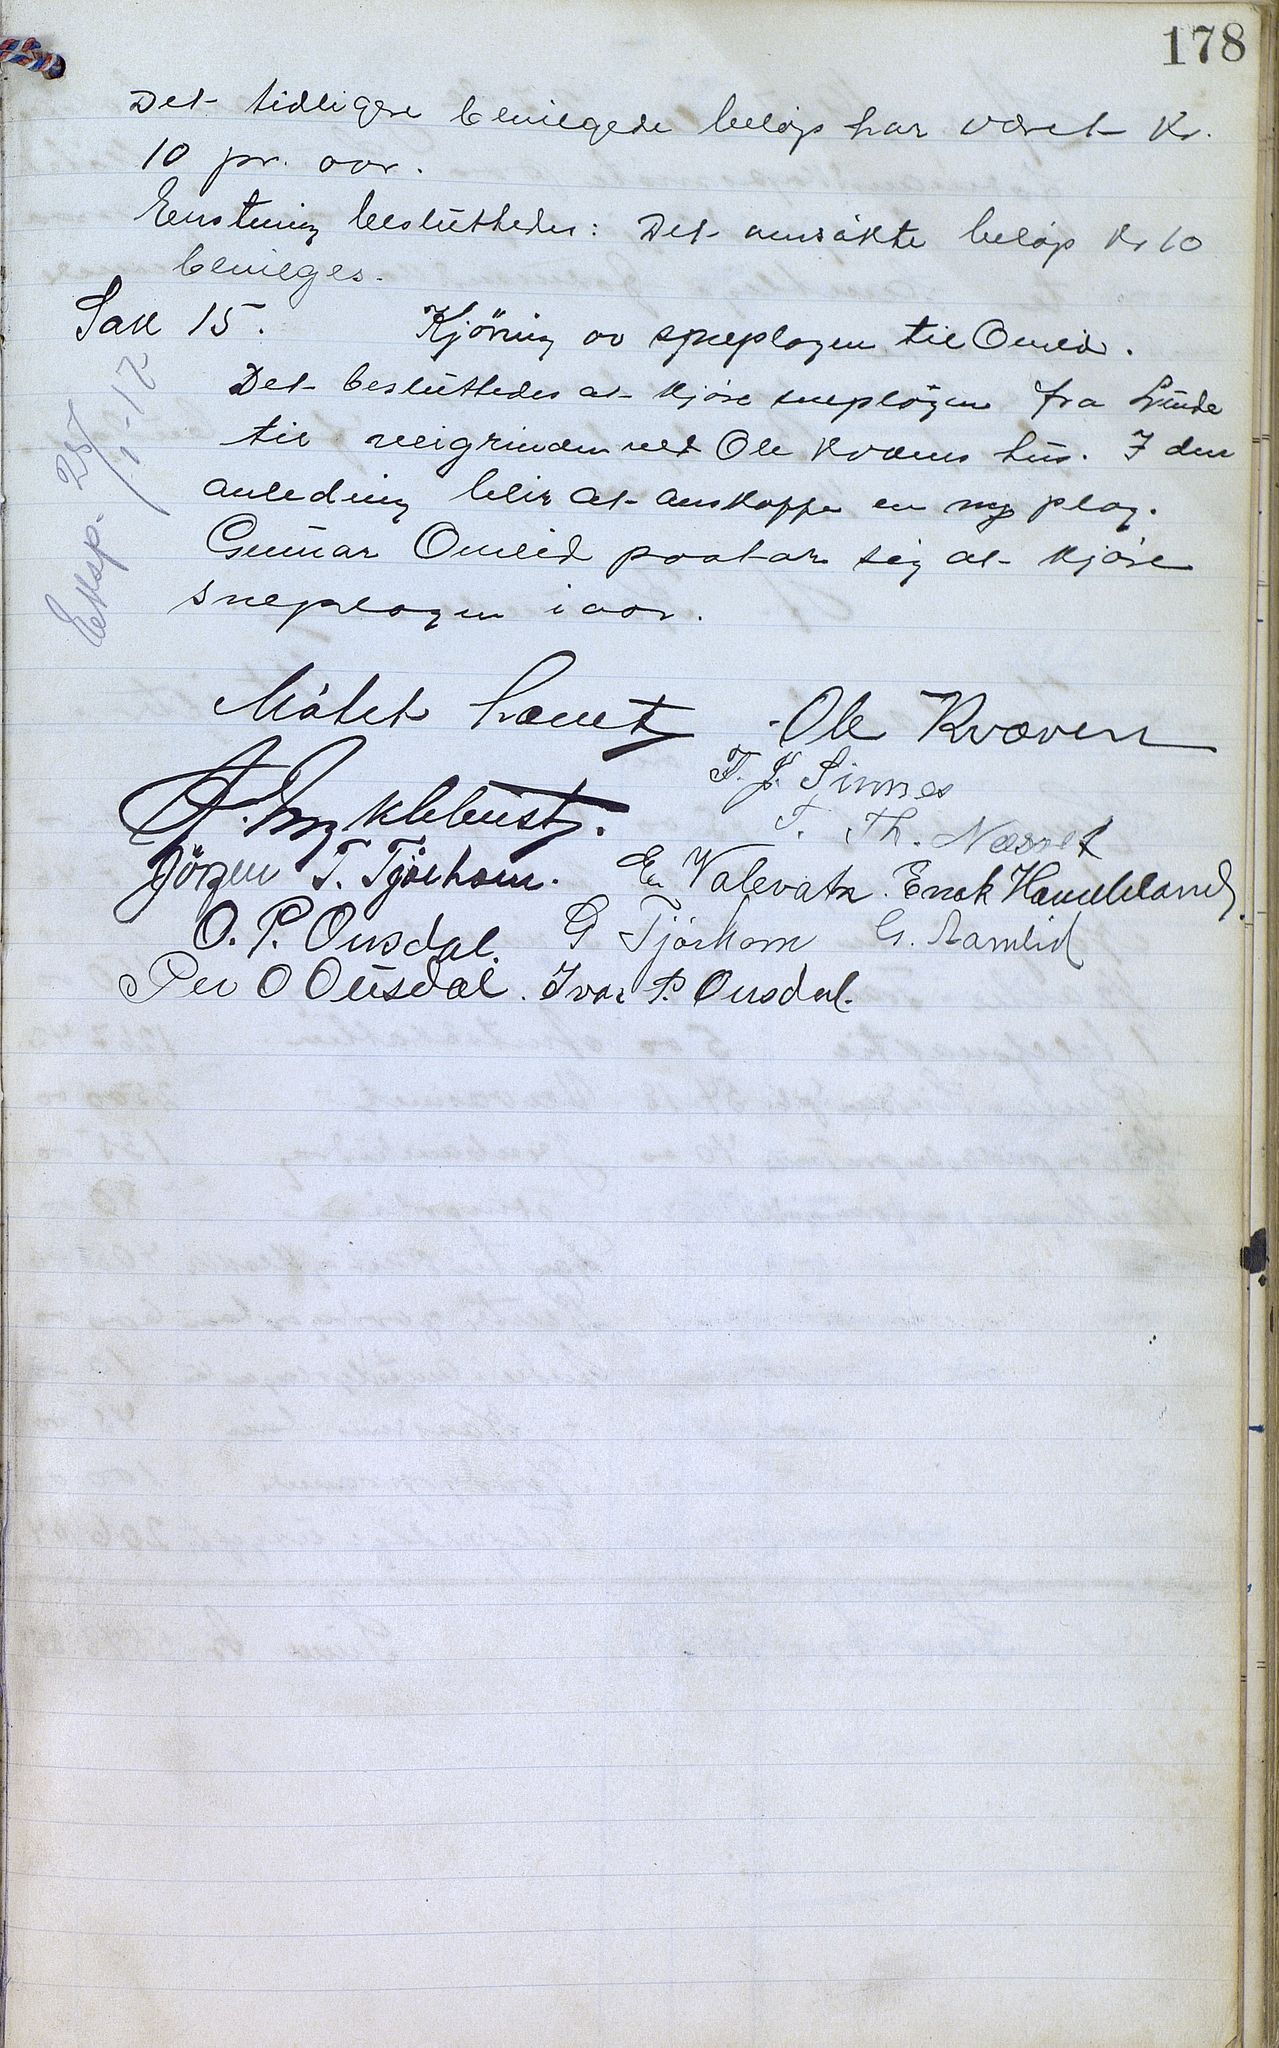 178
Det tidligere bevilgede beløp har været Kr.
10 pr. aar.
Enstemig besluttedes: Det ansøkte beløp Kr 10
bevilges.
Sak 15. Kjöring av sneplogen til Omlid.
Eksp. 25/1-17
Det besluttedes at kjöre sneplögen fra Lunde
til veigrinden ved Ole Kvævens hus. I den
anledning blir at anskaffe en ny plog.
Gunnar Omlid paatar sig at kjöre
sneplogen i aar.
Mötet hævet
Ole Kvæven
T. J. Sinnes
A. Myklebust.
T. Th. Næsset
Jörgen T. Tjörhom. En Valevatn. Enok Haubeland
O. P. Ousdal. G Tjörhom G. Aamlid
Per O Ousdal. Ivar P. Ousdal.